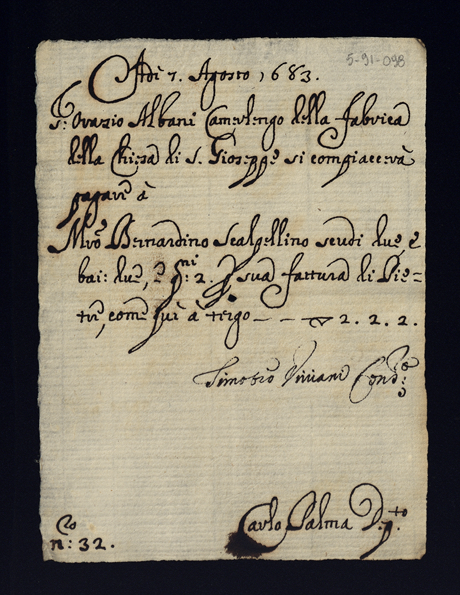 5-91-098
Adi 7. Agosto 1683.
Sr: Orazio Albani Camerlengo della Fabrica
della Chiesa di S. Gioseppe si compiacerà
pagare à
Mro Bernardino Scalpellino scudi due, e
bai: due, e qni: 2. p sua fattura di Pie-
tre, come quì à tergo - - - ▽ 2. 2. 2.
Timoteo Viviani Condre:
Carlo Palma D.pto.
n: 32.